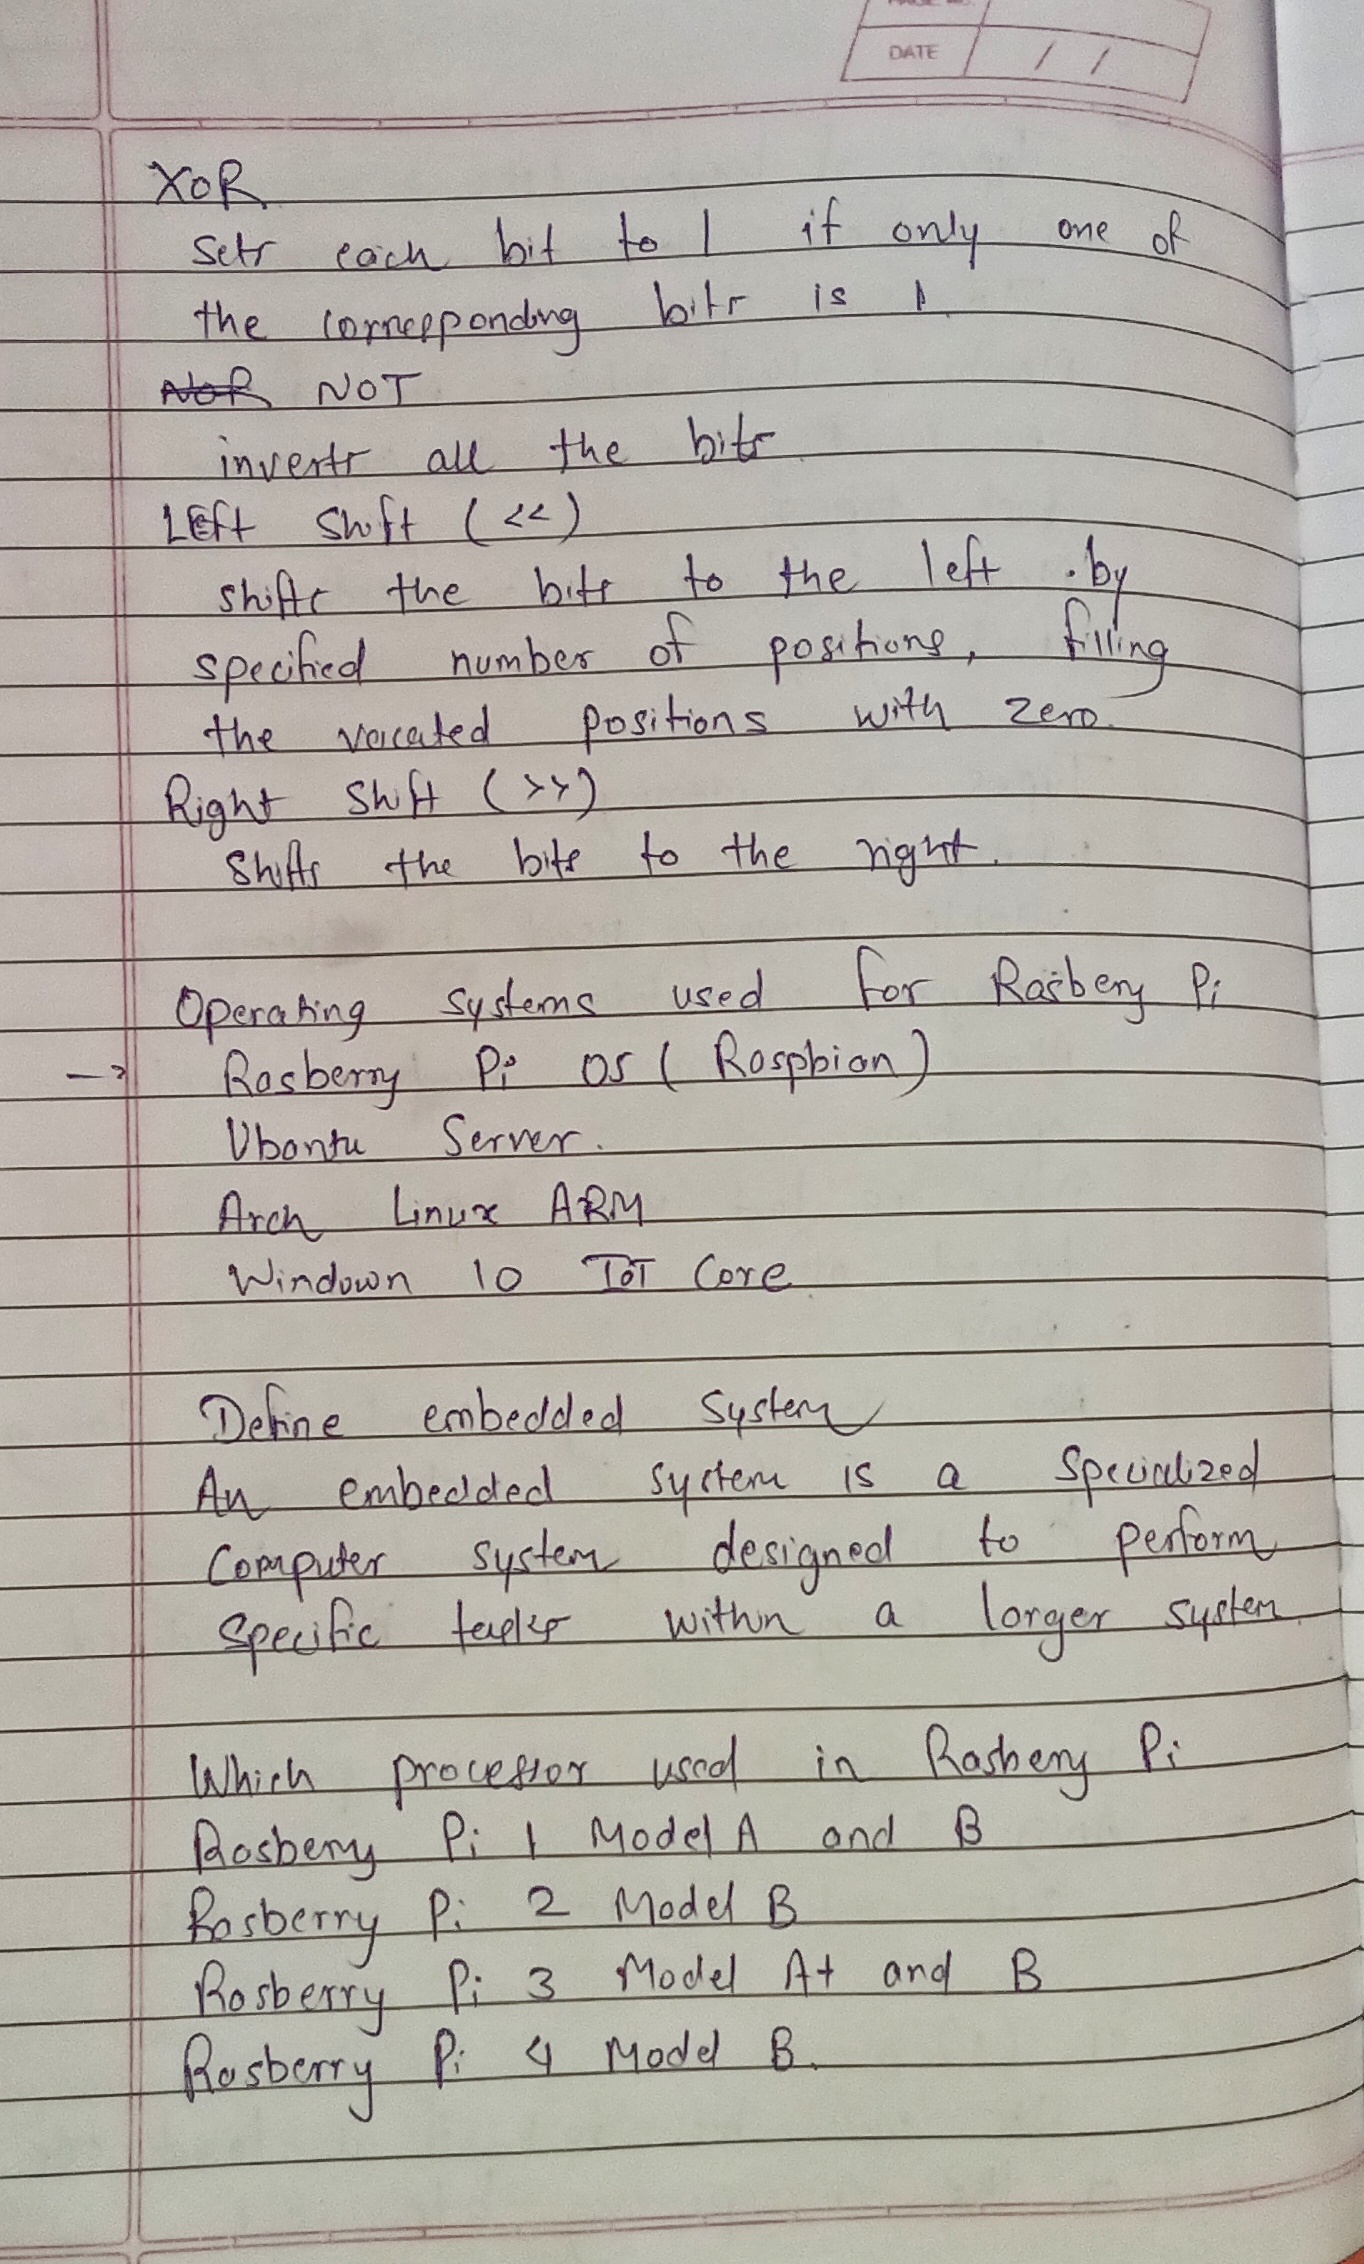 DATE / /
XOR
Sets each bit to 1 if only one of
the corresponding bits is 1
NOR NOT
inverts all the bits
LEft Shift (<<)
shifts the bits to the left . by
specified number of positions, filling
the vacated positions with zero.
Right Shift (>>)
Shifts the bits to the right.
Operating systems used for Rasbery Pi
→ Rasberry Pi OS ( Raspbian )
Ubontu Server.
Arch Linux ARM
Windown 10 IoT Core
Define embedded System
An embedded system is a Specialized
Computer system designed to perform
Specific tasks within a larger system.
Which processor used in Rasbery Pi
Rasbery Pi 1 Model A and B
Rasberry Pi 2 Model B
Rasberry Pi 3 Model A+ and B
Rasberry Pi 4 Model B.